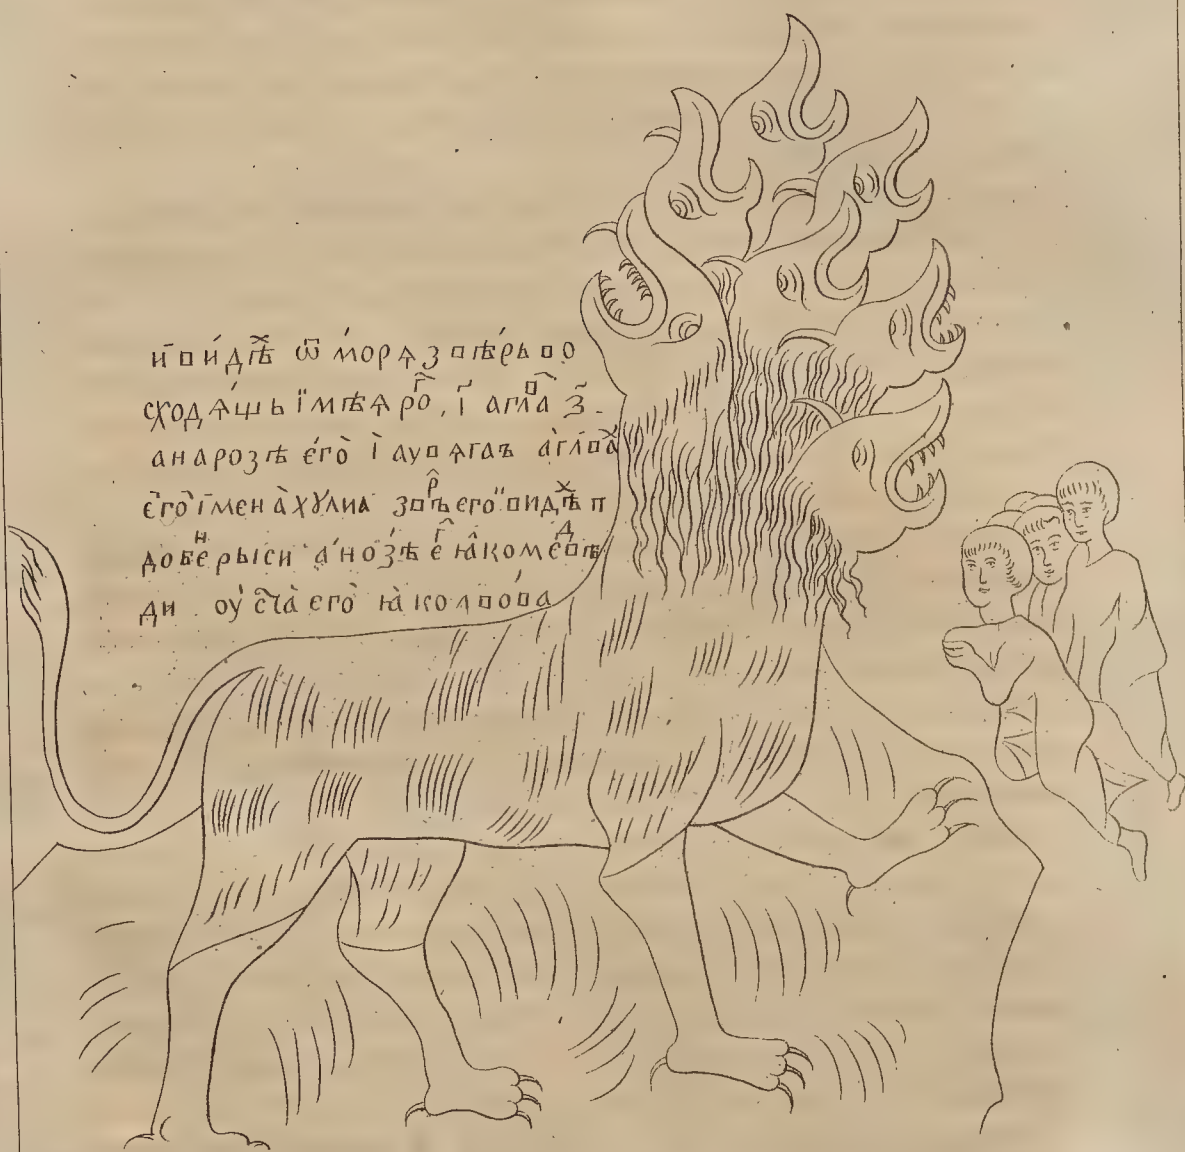 и҃ви́дѣх ѿ мо́рѧ ꙁвѣ́рь во
сходѧ́щь ї҆мѣѧ ро̑г, ї҃ а гла̑в ꙁ҃.
а на роꙁѣ е҆го̀ ї҃ а у вѧгаъ а҆ глава̀х
е҆го̀ і҆мена̀ хꙋлна ꙁвр̑ъ его видѣх п
добен рыси а но́ꙁѣ ег꙼ ꙗ҆ко медвѣ
ди оу҆ст҃а̀ его̀ ꙗ҆̀ко лво́ва